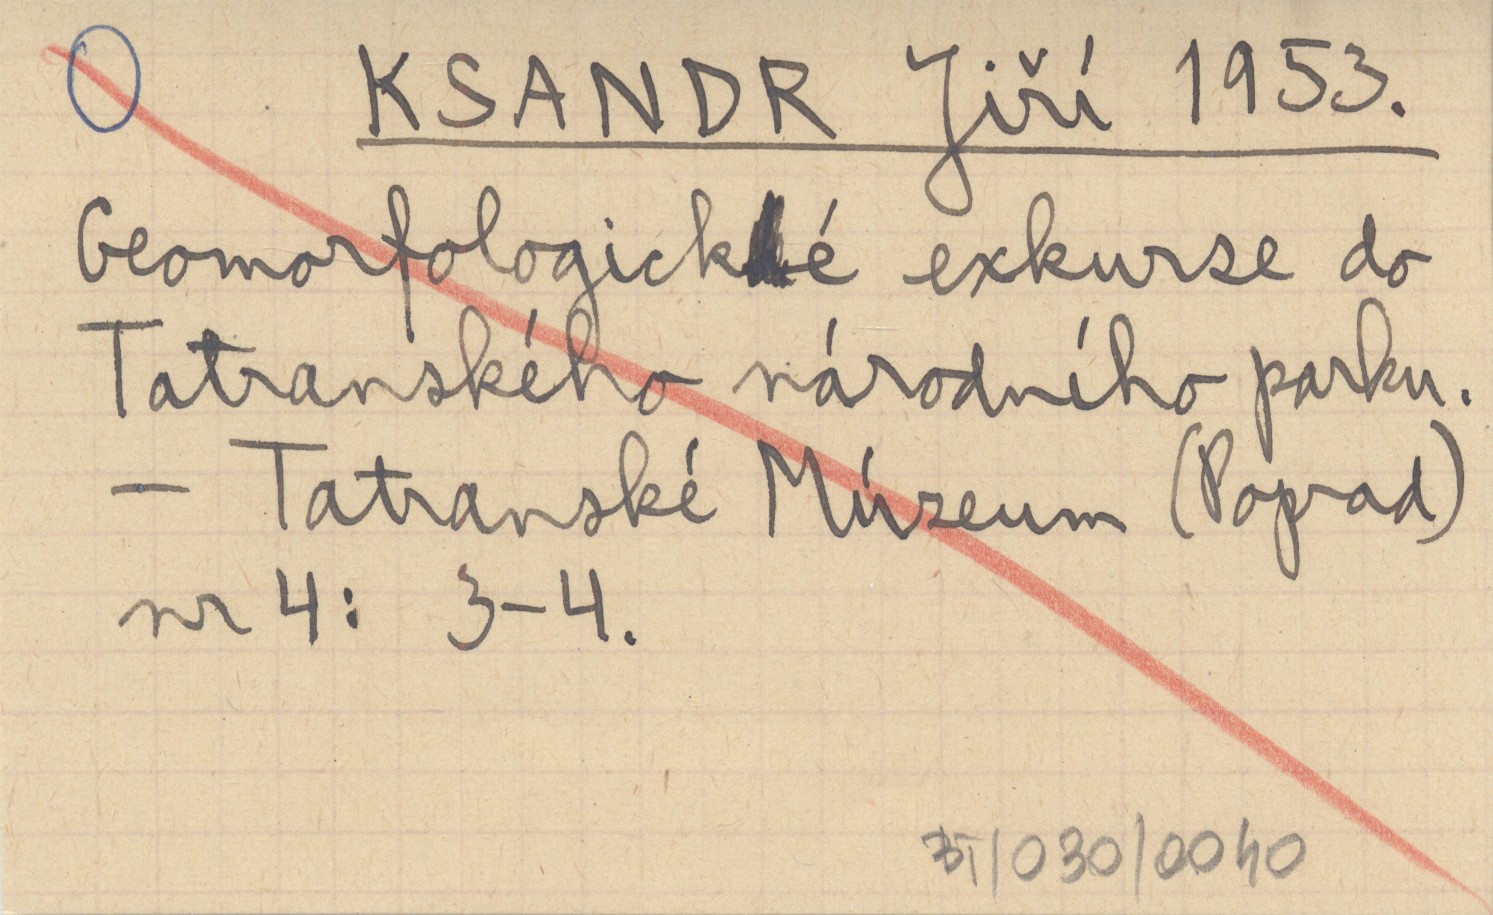 KSANDR Jiří 1953.
Geomorfologické exkurse do
Tatranského národního parku.
– Tatranské Múzeum (Poprad)
nr 4: 3–4.
/030/0040